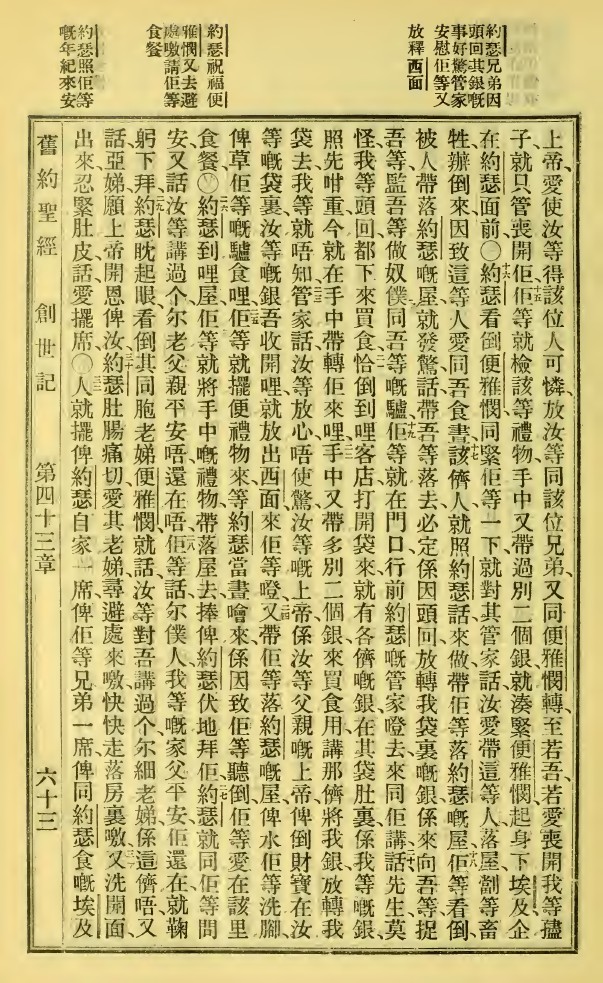 約瑟兄弟因
頭回其銀嘅
事好驚管家
安慰佢等又
放釋西面
約瑟祝福便
雅憫又去避
處嗷請佢等
食餐
約瑟照佢等
嘅年紀來安
上帝愛使汝等得該位人可憐放汝等同該位兄弟又同便雅憫轉至若吾若愛喪開我等孻
子就只管喪開佢十五佢等就檢該等禮物手中又帶過別二個銀就湊緊便雅憫起身下埃及企
在約瑟面前〇十六約瑟看倒便雅憫同緊佢等一下就對其管家話汝愛帶這等人落屋劏等畜
牲辦倒來因致這等人愛同吾食晝十七該儕人就照約瑟話來做帶佢等落約瑟嘅屋十八佢等看倒
被人帶落約瑟嘅屋就發驚話帶吾等落去必定係因頭回放轉我袋裏嘅銀係來向吾等捉
吾等監吾等做奴僕同吾等嘅驢十九佢等就在門口行前約瑟嘅管家磴去來同佢講話二十先生莫
怪我等頭回都下來買食二一恰倒到哩客店打開袋來就有各儕嘅銀在其袋肚裏係我等嘅銀
照先咁重今就在手中帶轉佢來哩二二手中又帶多別二個銀來買食用講那儕將我銀放轉我
袋去我等就唔知二三管家話汝等放心唔使驚汝等嘅上帝係汝等父親嘅上帝俾倒財寶在汝
等嘅袋裏汝等嘅銀吾收開哩就放出西面來佢等磴二四又帶佢等落約瑟嘅屋俾水佢等洗腳
俾草佢等嘅驢食哩二五佢等就擺便禮物來等約瑟當晝噲來係因致佢等聽倒佢等愛在該里
食餐〇二六約瑟到哩屋佢等就將手中嘅禮物帶落屋去捧俾約瑟伏地拜佢二七約瑟就同佢等問
安又話汝等講過个尔老父親平安唔還在唔二八佢等話尔僕人我等嘅家父平安佢還在就鞠
躬下拜二九約瑟眈起眼看倒其同胞老娣便雅憫就話汝等對吾講過个尔細老娣係這儕唔又
話亞娣願上帝開恩俾汝三十約瑟肚腸痛切愛其老娣尋避處來嗷快快走落房裏嗷三一又洗開面
出來忍緊肚皮話愛擺席〇三二人就擺俾約瑟自家一席俾佢等兄弟一席俾同約瑟食嘅埃及
舊約聖經 創世記 第四十三章 六十三